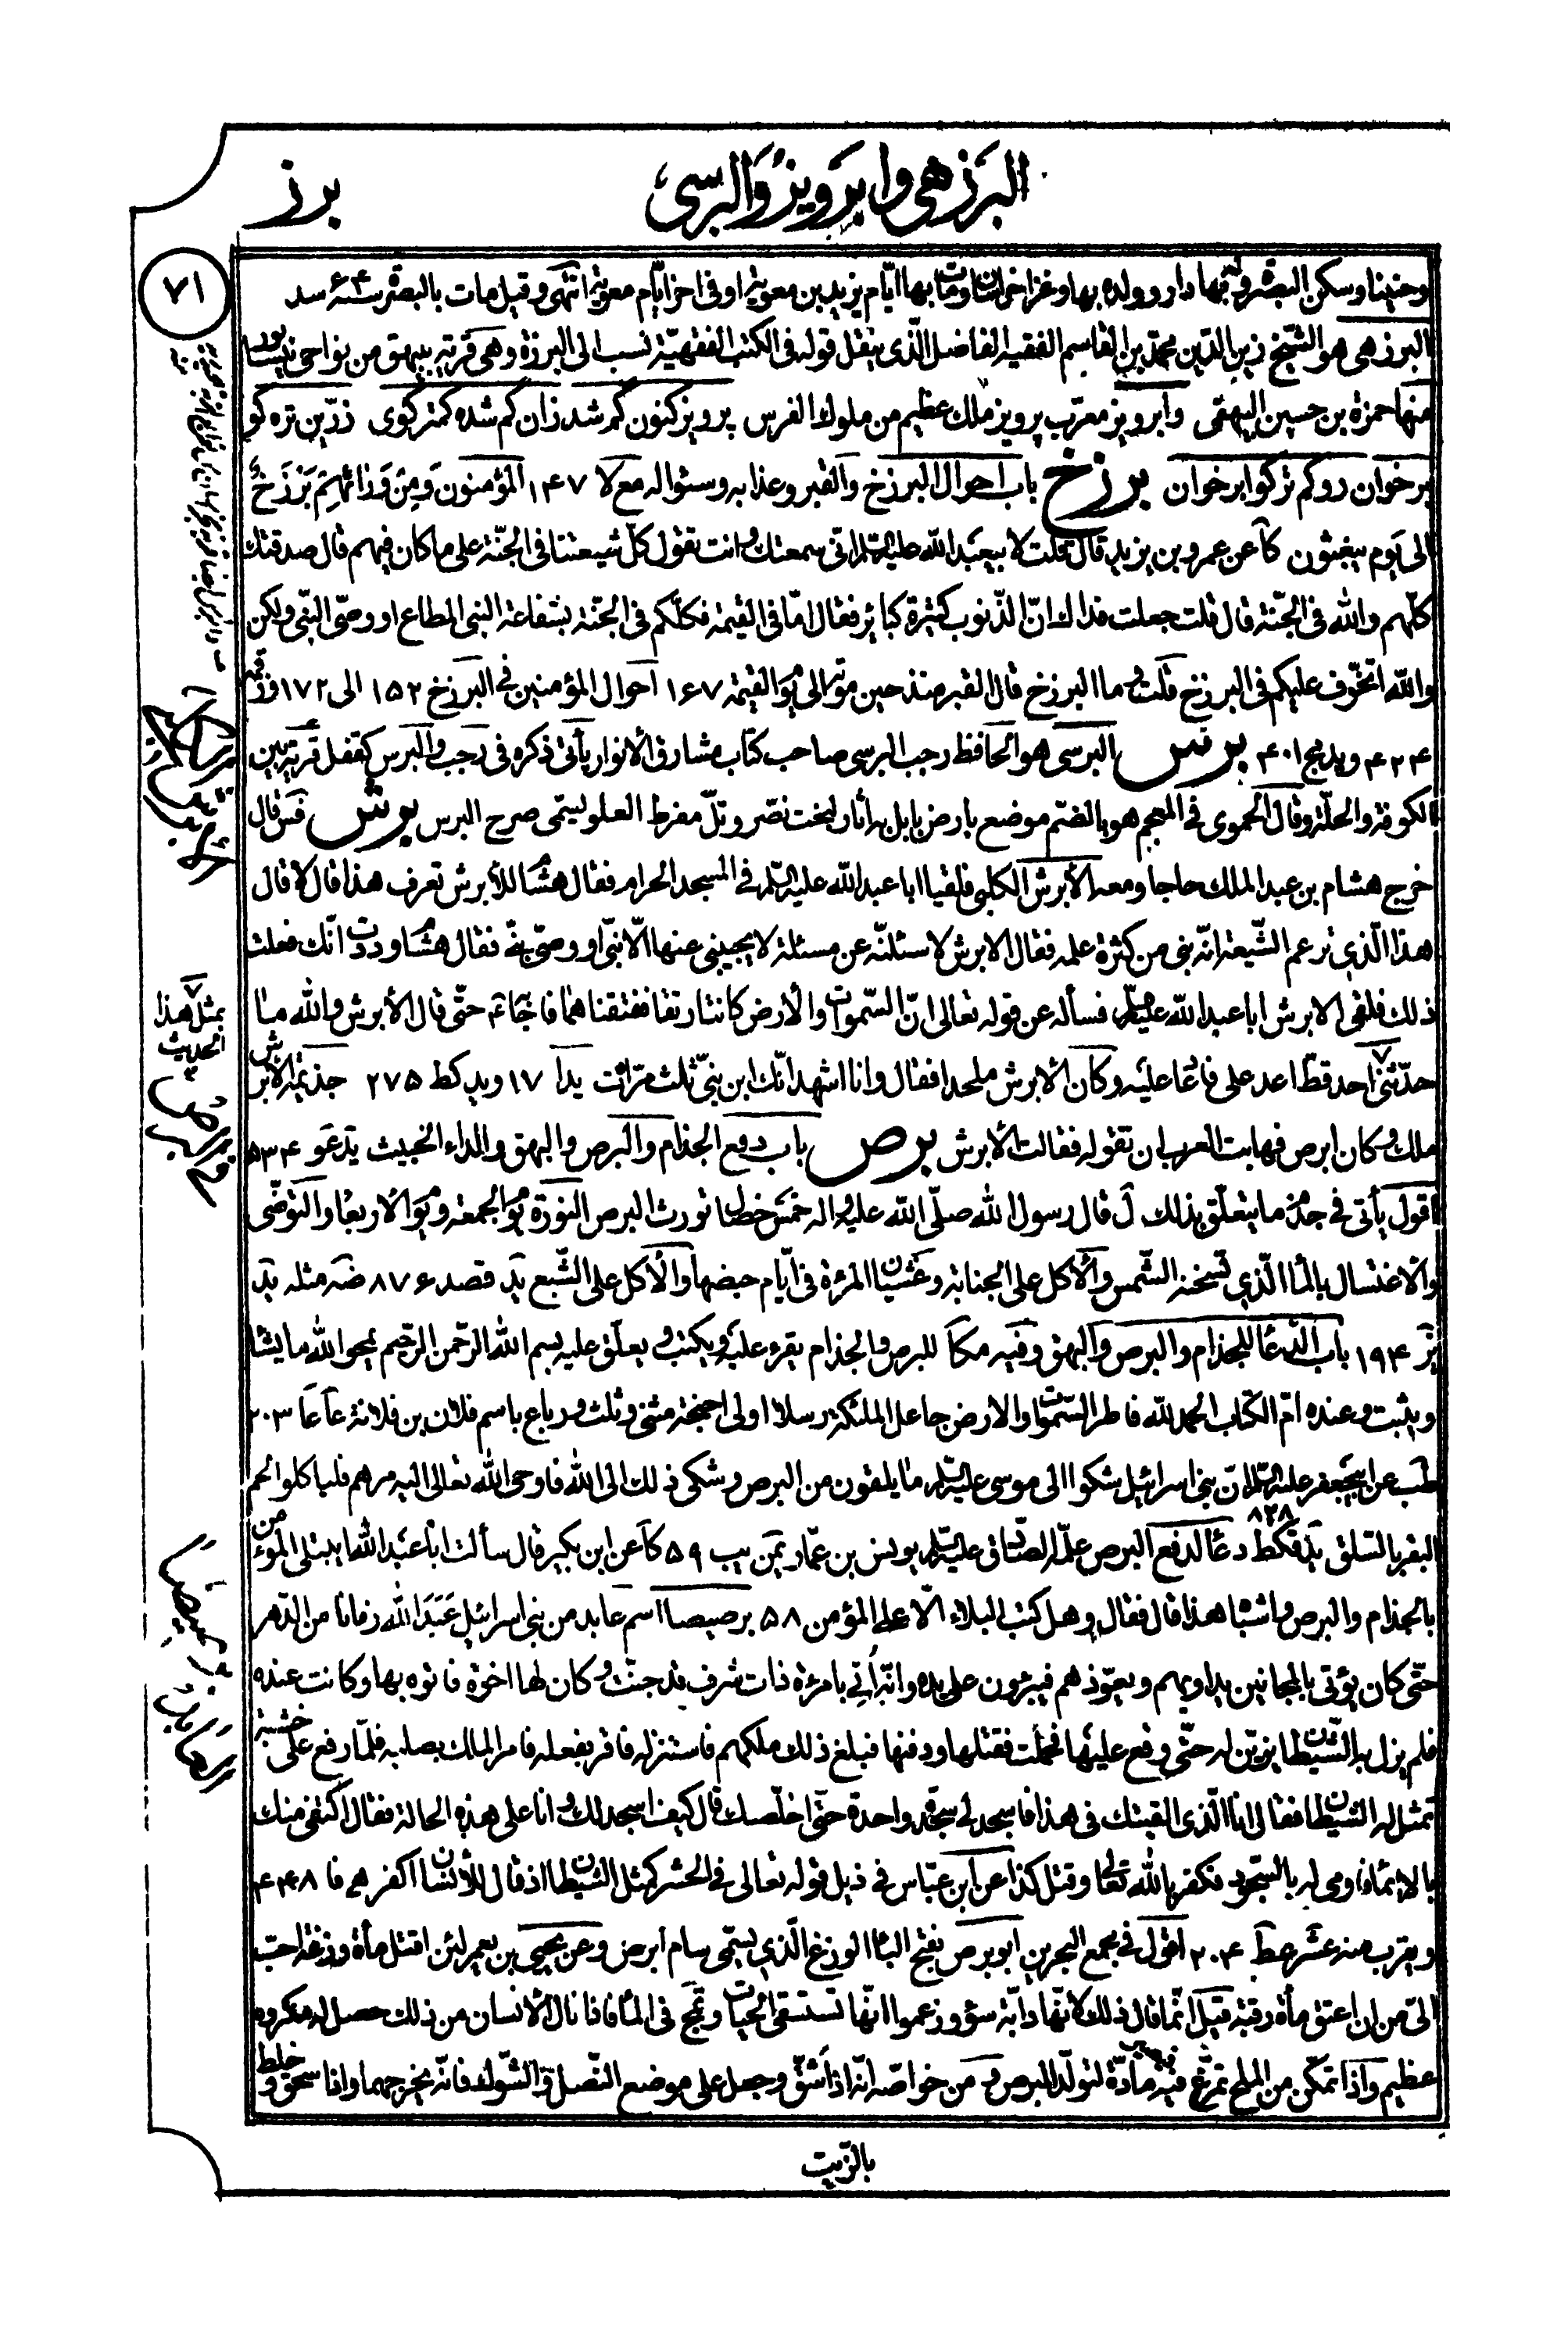 البَرزهی وابرویز والبرسی
برز
٧١
وحنينا وسكن البصرة وله بها دار وولده بها وغزا خراسان ومات بها ايّام يزيد بن معوية او فى اخر ايّام معوية انتهى وقيل مات بالبصرة سنة ۶۴ سد
البرزهى هو الشّيخ زين الدّين محمّد بن القاسم الفقيه الفاضل الّذى ينقل قوله فى الكتب الفقهيّة نسب الى البرزة وهى قرية ببيهق من نواحى نيسابور
منها حمزة بن حسين البيهقى وابرويز معرّب پرويز ملك عظيم من ملوك الفرس پرويز كنون گم شد زان گم شده كمتر گوى زرّين تره كو
برخوان رو كم تركوا برخوان برزخ باب احوال البرزخ والقبر وعذابه وسئواله مع لا ١۴٧ المؤمنون وَمِنْ وَرَائهِمْ بَرْزَخٌ
الى يَوم يبعثون كا عن عمرو بن يزيد قال قلت لابيعبد الله عليه السّلم انى سمعتك وانت تقول كلّ شيعتنا فى الجنّة على ما كان فيهم قال صدقتك
كلّهم والله فى الجنّة قال قلت جعلت فداك انّ الذّنوب كثيرة كبائر فقال امّا فى القيمة فكلّكم فى الجنّة بشفاعة النبى المطاع او وصىّ النبّى ولكن
والله اتخوّف عليكم فى البرزخ قلت وما البرزخ قال القبر منذ حين موته الى يوم القيمة ١۶٧ احوال المؤمنين فى البرزخ ١۵٢ الى ١٧٢
۴٢۴ ويد مج ۴٠١ برس البرسى هو الحافظ رجب البرسى صاحب كتاب مشارق الأنوار يأتى ذكره فى رجب والبرس كقفل قرية بين
الكوفة والحلّة وقال الحموى فى المعجم هو بالضّم موضع بارض بابل به اثار لبخت نصّر وتلّ مفرط العلو ليسمّى صرح البرس برش فس قال
خرج هشام بن عبد الملك حاجا ومعه الأبرش الكلبى فلقيا ابا عبد الله عليه السّلم فى المسجد الحرام فقال هشام للأبرش تعرف هذا قال لا قال
هذا الّذى تزعم الشّيعة انّه نبى من كثرة علمه فقال الابرش لاسئلنّه عن مسئلة لا يجيبنى عنها الّا نبىّ او وصىّ نبىّ فقال هشام وددت انّك فعلت
ذلك فلقى الابرش ابا عبد الله عليه السّلم فسأله عن قوله تعالى انّ السّموات والأرض كانتا رتقا ففتقناهما فاجابه ثم حتّى قال الأبرش والله ما
حدّثنى احد قطّ اعد على فاعاد عليه وكان الأبرش ملحدا فقال وانا اشهد انّك ابن نبىّ ثلث مرّات يدا ١٧ ويد كط ٢٧۵ جذيمة الابرش
ملك وكان ابرص فهابت العرب ان تقوله فقالت الأبرش برص باب دفع الجذام والبرص والبهق والداء الخبيث يد عو ۵٣۴
اقول يأتى فى جذم ما يتعلّق بذلك ل قال رسول الله صلّى الله عليه واله خمس خصال تورث البرص النورة يوم الجمعة ويوم الأربعاء والتوضّى
والاغتسال بالماء الّذى تسخنه الشّمس والأكل على الجنابة وغشيان المرءة فى ايّام حيضها والأكل على الشّبع يد قصد ٨٧۶ ضه مثله يد
نز ١٩۴ باب الدّعاء للجذام والبرص والبهق وفيه مكا للبرص والجذام يقرء عليه ويكتب ويعلّق عليه بسم الله الرّحمن الرّحيم يمحوا الله ما يشاء
ويثبت وعنده امّ الكتاب الحمد لله فاطر السّموات والارض جاعل الملئكة رسلا اولى اجنحة مثنى وثلث ورباع باسم فلان بن فلانة عا عا ٢٠٣
طب عن ابيجعفر عليه السّلم انّ بنى اسرائيل شكوا الى موسى عليه السّلم ما يلقون من البرص وشكى ذلك الى الله فاوحى الله تعالى اليه مرهم فلياكلوا لحم
البقر بالسّلق يد قكط ٨٢٨ دعاء لدفع البرص علّمه الصّادق عليه السّلم يونس بن عمّار يمن يب ۵٩ كا عن ابن بكير قال سألت ابا عبد الله ايبتلى المؤمن
بالجذام والبرص واشباه هذا قال فقال وهل كتب البلاء الّا على المؤمن ۵٨ برصيصا اسم عابد من بنى اسرائيل عَبَدَ الله زمانا من الدّهر
حتّى كان يؤتى بالمجانين يداويهم ويعوّذهم فيبرؤن على يده وانّه أتى بامرءة ذات شرف قد جنّت وكان لها اخوة فاتوه بها وكانت عنده
فلم يزل به الشّيطان يزيّن له حتّى وقع عليها فحملت فقتلها ودفنها فبلغ ذلك ملكهم فاستنزله فاقر بفعله فامر الملك بصلبه فلمّا رفع على خشبة
تمثل له الشيطان فقال انا الّذى القيتك فى هذا فاسجد لى سجدة واحدة حتّى اخلّصك قال كيف اسجد لك وانا على هذه الحالة فقال اكتفى منك
بالايماء فاومى له بالسّجود فكفر بالله تعالى وقتل كذا عن ابن عبّاس فى ذيل قوله تعالى فى الحشر كمثل الشّيطان اذ قال للأنسان اكفر هـ فا ۴۴٨
ويقرب منه عشر صط ٢٠۴ اقول فى مجمع البحرين ابوبرص بفتح الباء الوزغ الّذى يسمّى سام ابرص وعن يحيى بن يعمر لئن اقتل مأة وزغة احبّ
الىّ من ان اعتق مأة رقبة قيل انّما قال ذلك لانّها دابّة سوء وزعموا انّها تستسقى الحيات وتمج فى الماء فاذا نال الأنسان من ذلك حصل له مكروه
عظيم واذا تمكّن من الملح تمرّغ فيه فيصير مادّة لتولّد البرص ومن خواصّه انّه اذا شقّ وجعل على موضع النّصل والشّوك فانّه يخرجهما واذا سحق وخلط
بالزّيت
بمثل هذا
الحديث